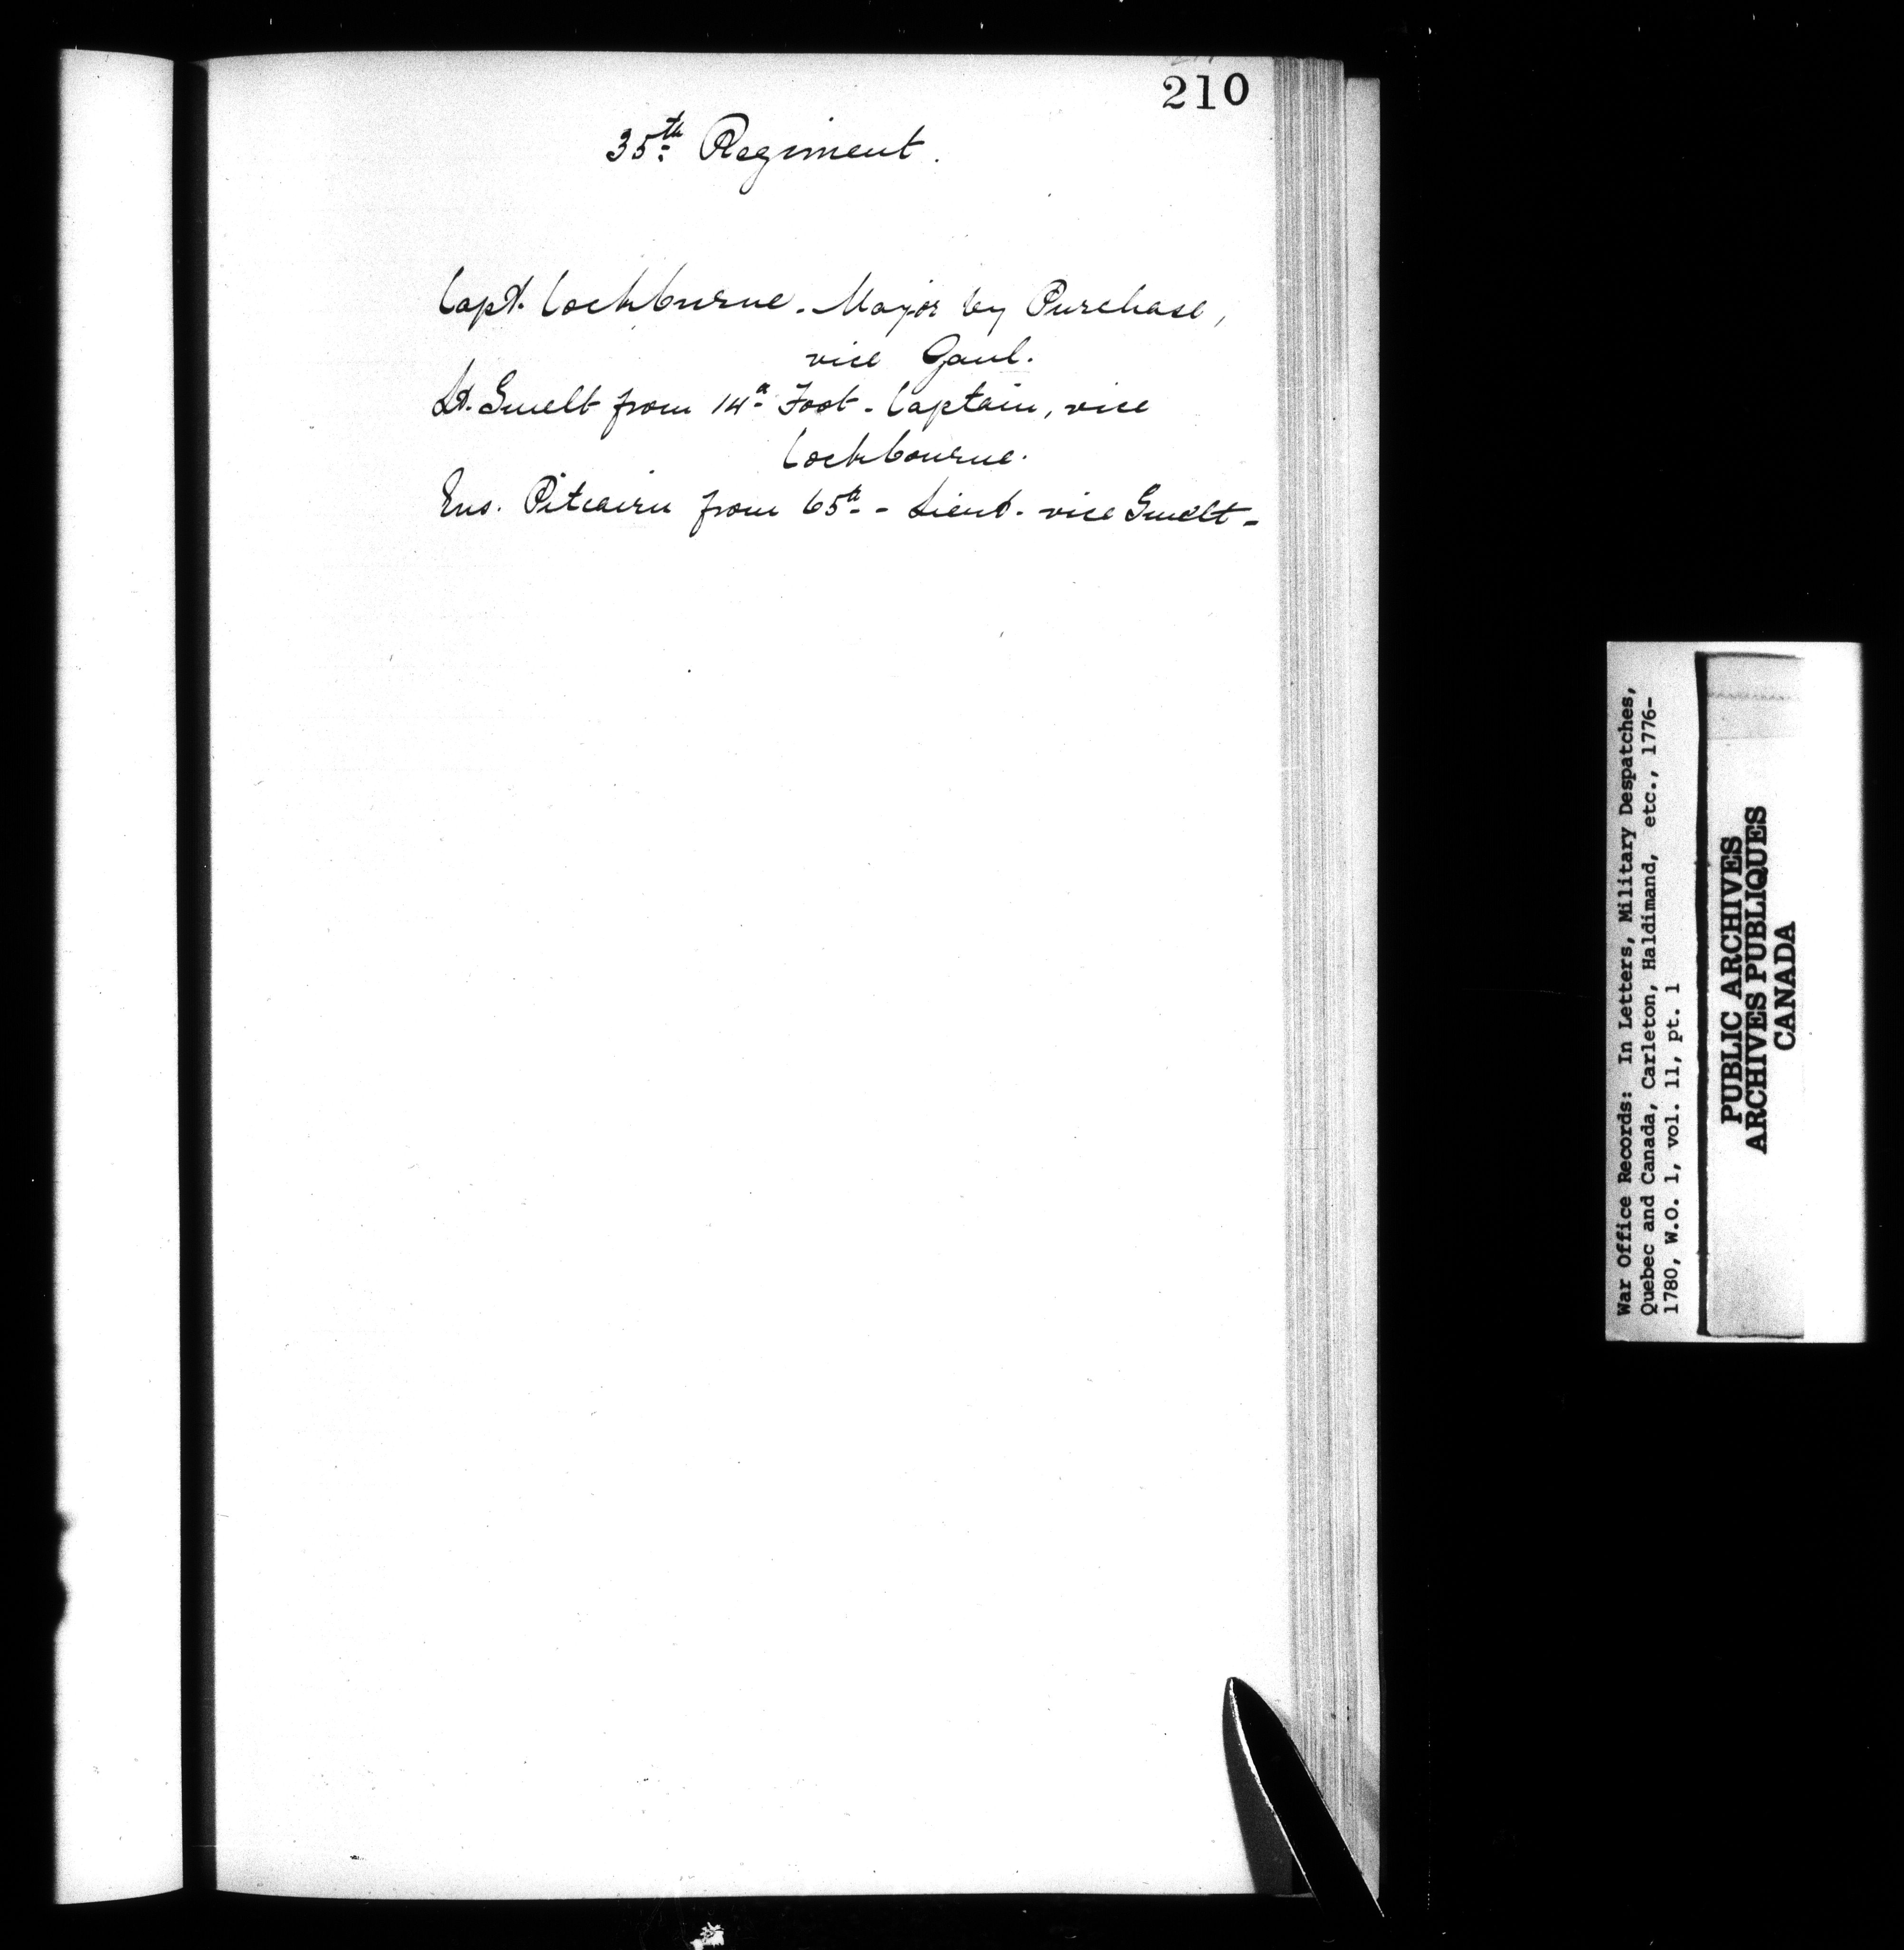 210
35th Regiment.
Capt. Cockburne. Major by Purchase,
vice Gaul.
Lt. Smelt from 14th Foot - Captain, vice
Cockbourne.
Ens. Pitcairn from 65th - Lieut. vice Smelt -
War Office Records: In Letters, Military Despatches,
Quebec and Canada, Carleton, Haldimand, etc., 1776-
1780, W.O. 1, vol. 11, pt. 1
PUBLIC ARCHIVES
ARCHIVES PUBLIQUES
CANADA